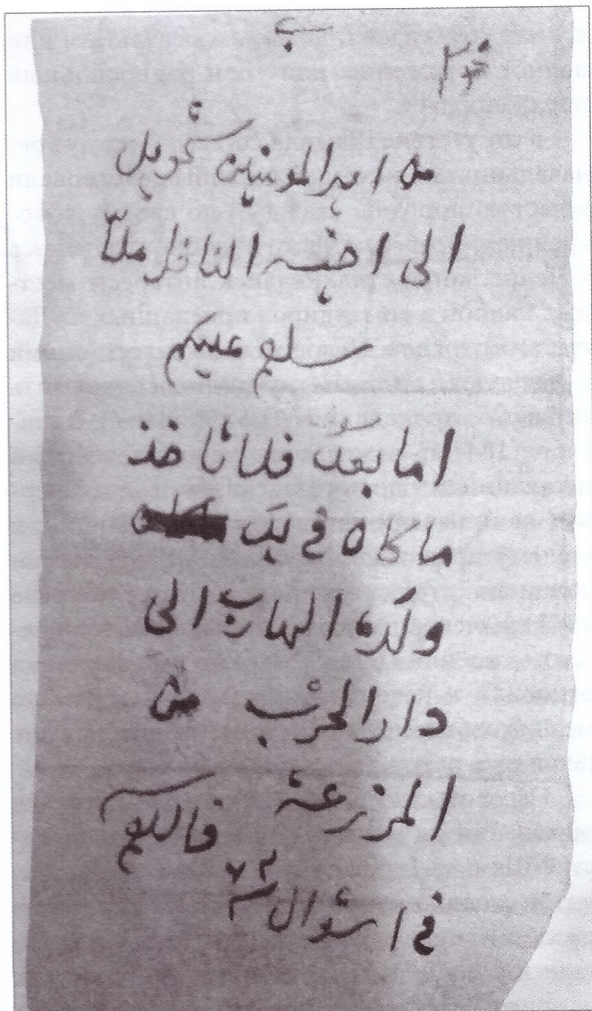 من امير المومنين شمويل
الى اخيه الناظر ملّا
سلام عليكم
اما بعد فلا تاخذ
ما كان في يد
ولده الهارب الى
دار الحرب من
المزرعة
في ا شوال